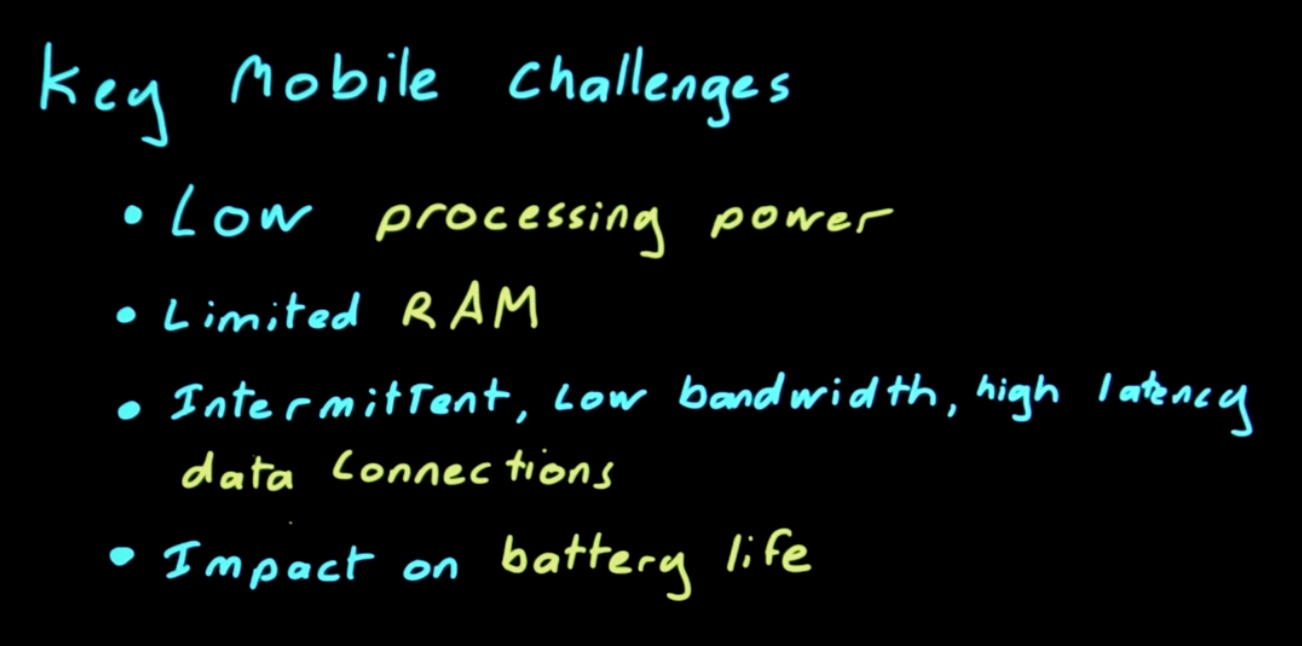 Key Mobile Challenges
• Low processing power
• Limited RAM
• Intermittent, Low bandwidth, high latency
data Connections
• Impact on battery life